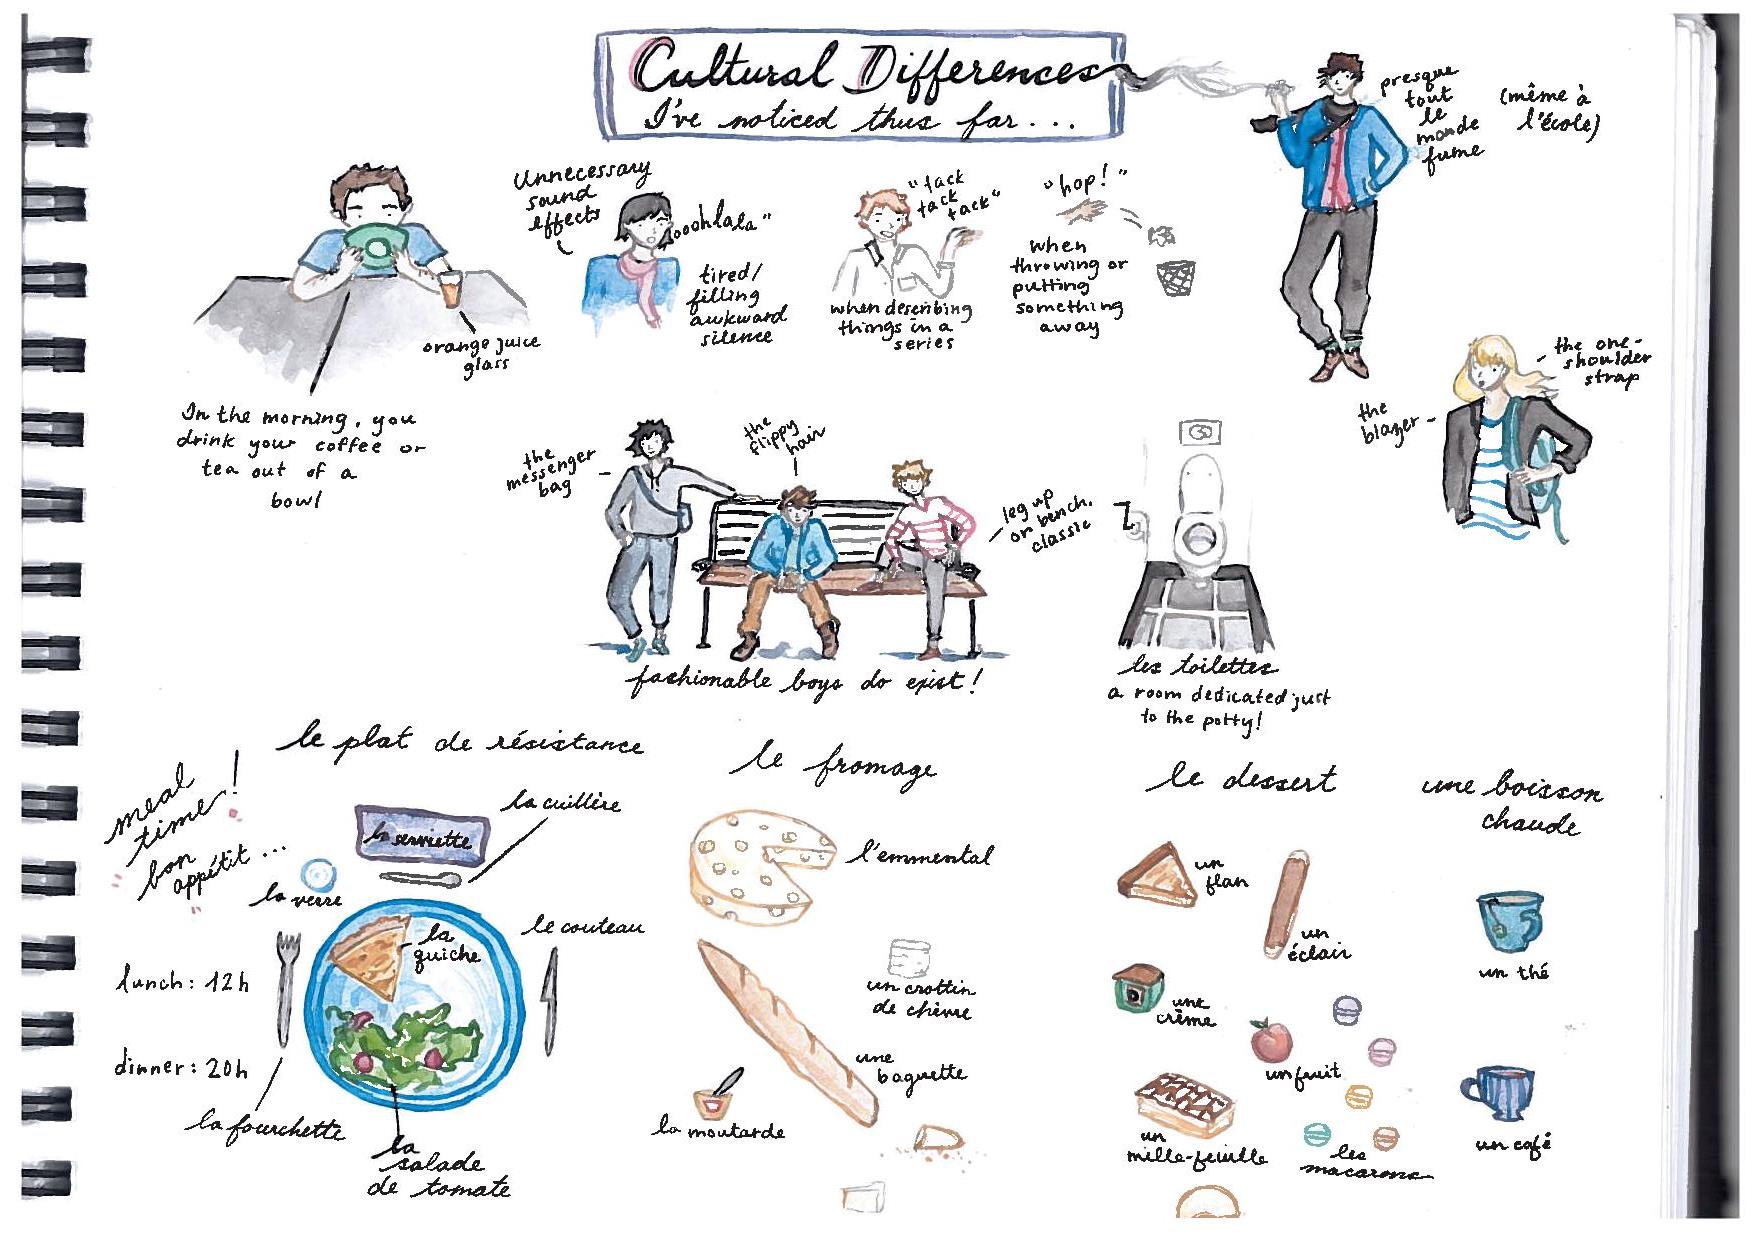 Cultural Differences
I've noticed thus far...
presque
tout
le
monde
fume
(même à
l'école)
unnecessary
sound
effects
ooohlala"
tired/
filling
awkward
silence
"tack
tack
tack"
when describing
things in a
series
"hop!"
when
throwing or
putting
something
away
orange juice
glass
In the morning, you
drink your coffee or
tea out of a
bowl
the one-
shoulder
strap
the
blazer
the
messenger
bag
the
flippy
hair
leg up
on bench,
classic
fashionable boys do exist!
les toilettes
a room dedicated just
to the potty!
meal
time!
bon
appétit...
le plat de résistance
la cuillère
la serviette
la verre
le couteau
la
quiche
lunch: 12h
dinner: 20h
la fourchette
la
salade
de tomate
le fromage
l'emmental
un crottin
de chèvre
une
baguette
la moutarde
le dessert
un
flan
un
éclair
une
crème
un fruit
un
mille-feuille
les
macarons
une boisson
chaude
un thé
un café